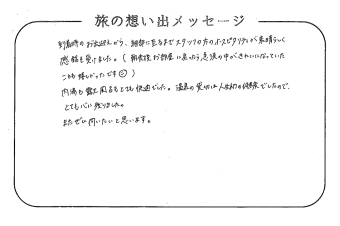 旅の想い出メッセージ
到着時のお出迎えから、細部に至るまでスタッフの方のホスピタリティが素晴らしく
感銘を受けました。(朝食後お部屋に戻ったら、急須の中がきれいになっていた
ことも嬉しかったです☺)
内湯も露天風呂もとても快適でした。温泉の貸切は人生初の体験でしたので、
とても心に残りました。
またぜひ伺いたいと思います。